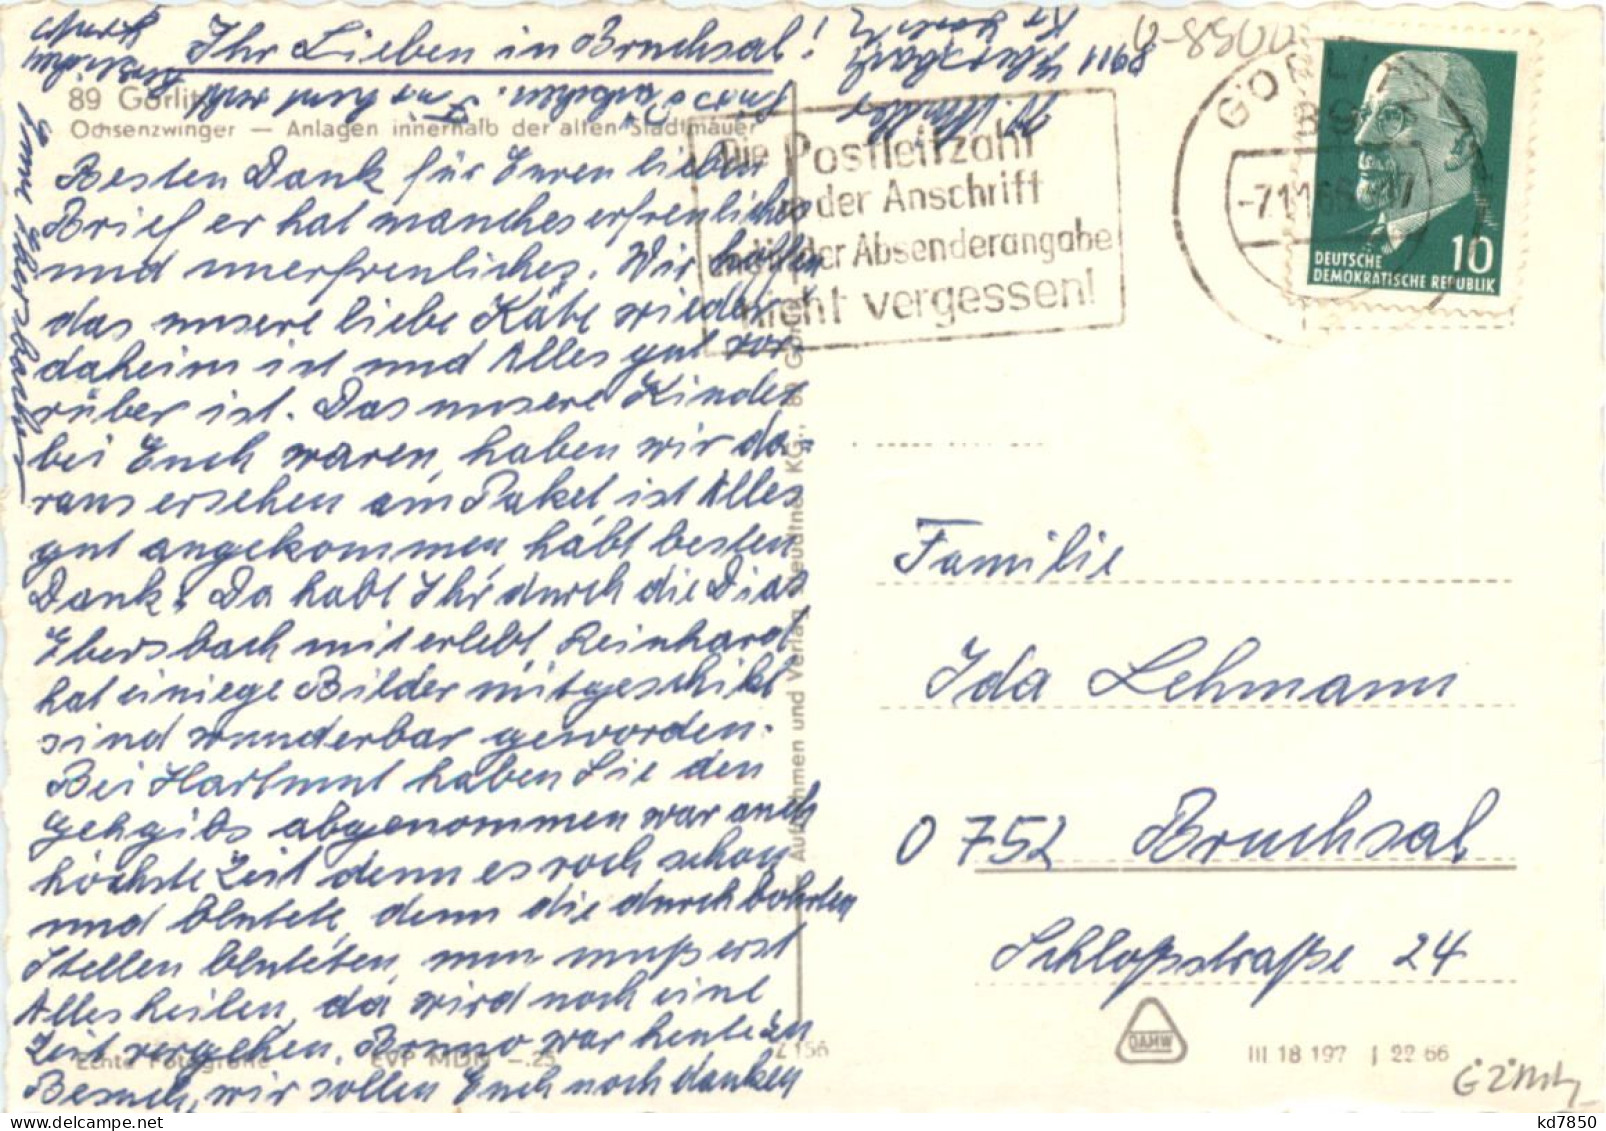 Ihr Lieben in Bruchsal!
89 Görlitz
Ochsenzwinger — Anlagen innerhalb der alten Stadtmauer
Besten Dank für Euren lieben
Brief er hat manches erfreuliches
und unerfreuliches. Wir hoffen
das unsere liebe Käte wieder
daheim ist und Alles gut vor-
rüber ist. Das unsere Kinder
bei Euch waren, haben wir da-
raus ersehen am Paket ist Alles
gut angekommen habt besten
Dank. Da habt Ihr durch die Dias
Ebersbach miterlebt Reinhard
hat einiege Bilder mitgeschikt
sind wunderbar geworden.
Bei Hartmut haben Sie den
Gehgibs abgenommen war auch
höchste Zeit denn es roch schon
und blutete, denn die durchbohrten
Stellen bluteten, nun muß erst
Alles heilen, da wird noch eine
Zeit vergehen. Bruno war heute zu
Besuch, wir sollen Euch noch danken
Echte Fotografie EVP MDN —.25
Z 156
Aufnahmen und Verlag
KG., 89 Görlitz
8911 Ebersbach
Die Postleitzahl
in der Anschrift
und in der Absenderangabe
nicht vergessen!
GÖRLITZ
89
-7.11.66-17
DEUTSCHE
DEMOKRATISCHE REPUBLIK
10
Familie
Ida Lehmann
O 752 Bruchsal
Schloßstraße 24
DAMW
III 18 197 J 22 66
kd7850